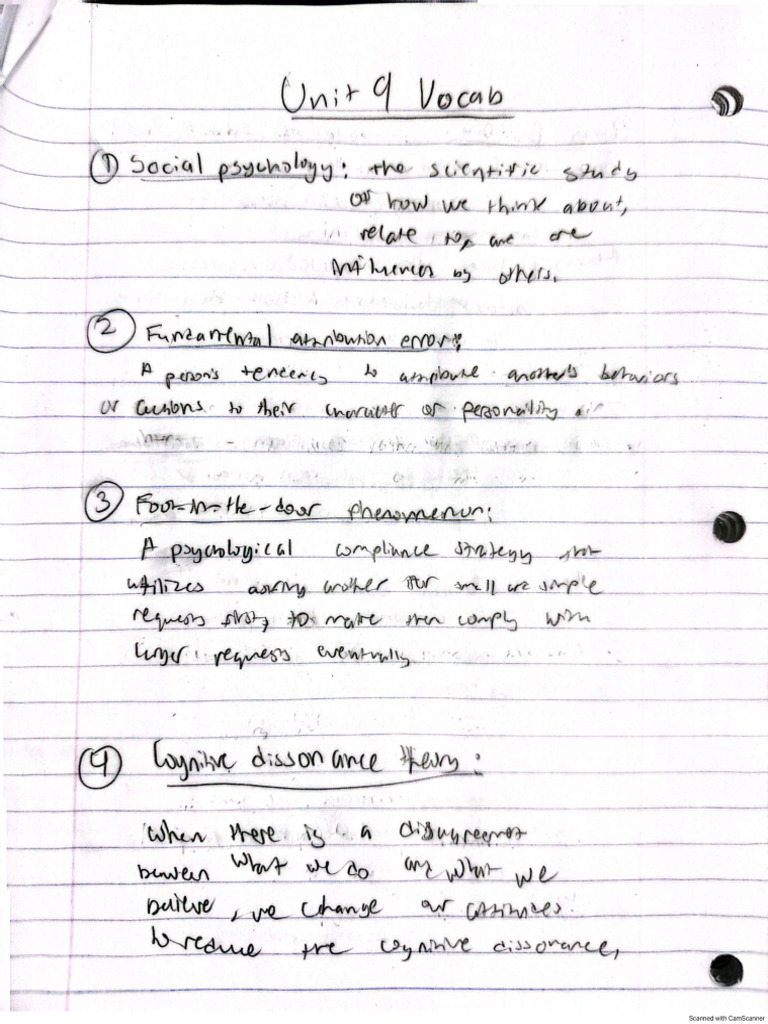 Unit 9 Vocab
① Social psychology: the scientific study
of how we think about,
relate to, and are
influences by others.
② Fundamental attribution error:
A person's tendency to attribute another's behaviors
or actions to their character or personality
③ Foot-in-the-door phenomenon:
A psychological compliance strategy that
utilizes asking another for small and simple
requests first, to make them comply with
larger requests eventually
④ Cognitive dissonance theory:
When there is a disagreement
between what we do and what we
believe, we change our attitudes
to reduce the cognitive dissonance,
Scanned with CamScanner